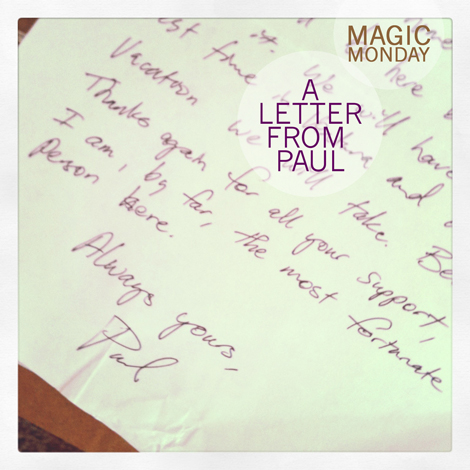 MAGIC
MONDAY
A
LETTER
FROM
PAUL
here
We will have
Vacation We will take.
Thanks again for all your support,
I am, by far, the most fortunate
person here.
Always yours,
Paul